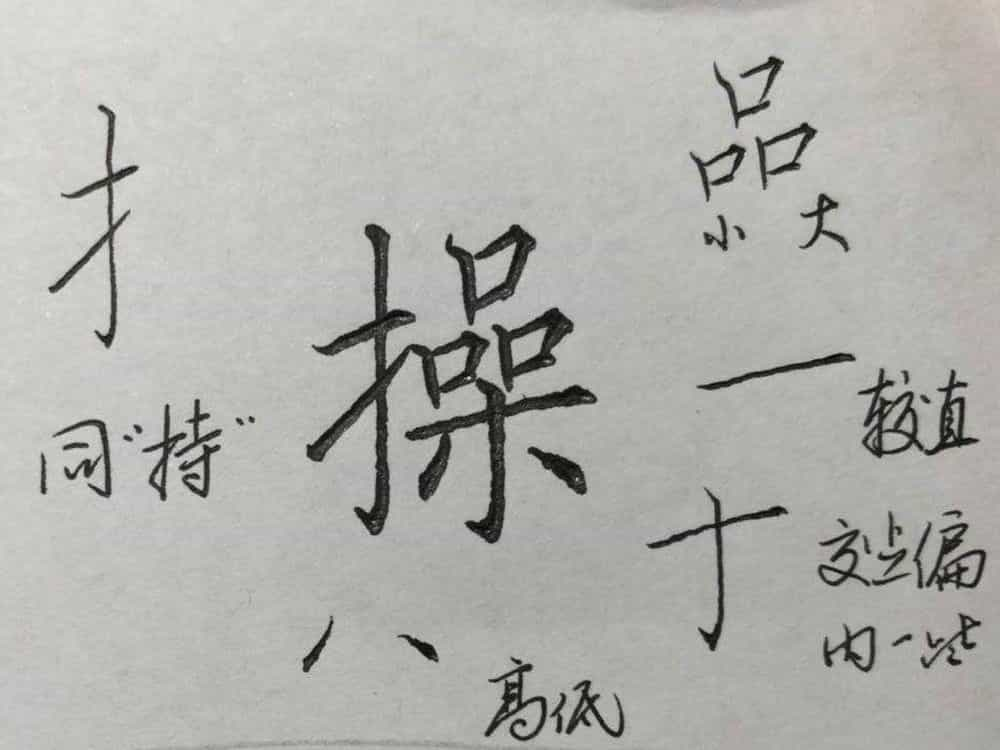 扌
同“持”
操
八
高低
品
小 大
一
较直
十
交点偏
内一些